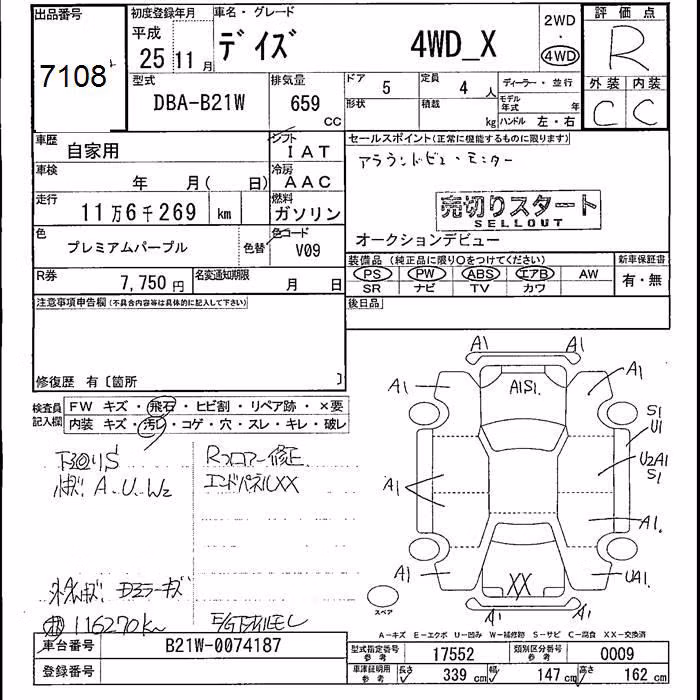 出品番号
7108
初度登録年月
平成
25 11月
車名・グレード
デイズ 4WD_X
2WD
・
4WD
評価点
R
外装 内装
C C
型式
DBA-B21W
排気量
659
CC
ドア 5
定員 4 人
形状
積載 kg
ディーラー・並行
モデル年式 年
ハンドル 左・右
車歴
自家用
シフト
IAT
車検
年 月( 日)
冷房
AAC
走行
11万6千269 km
燃料
ガソリン
色
プレミアムパープル
色替
色コード
V09
R券
7,750円
名変通知期限
月 日
セールスポイント(正常に機能するものに限ります)
アラウンドビューモニター
売切りスタート
SELLOUT
オークションデビュー
装備品(純正品に限り○をつけてください)
新車保証書
PS PW ABS エアB AW
SR ナビ TV カワ
有・無
後日品
注意事項申告欄(不具合内容等は具体的に記入して下さい)
修復歴 有〔箇所 〕
検査員記入欄
FW キズ・飛石・ヒビ割・リペア跡・×要
内装 キズ・汚レ・コゲ・穴・スレ・キレ・破レ
下回りS
Rフロアー修正
A.U.W2
エンドパネルXX
116270km
A1 A1
A1 A1S1 A1
S1
U1
U2A1
S1
A1
A1
A1 XX UA1
A1 A1
スペア
A-キズ E-エクボ U-凹み W-補修跡 S-サビ C-腐食 XX-交換済
車台番号
B21W-0074187
登録番号
型式指定番号
参考
17552
類別区分番号
参考
0009
車庫証明用
参考
長さ 339 cm
幅 147 cm
高さ 162 cm